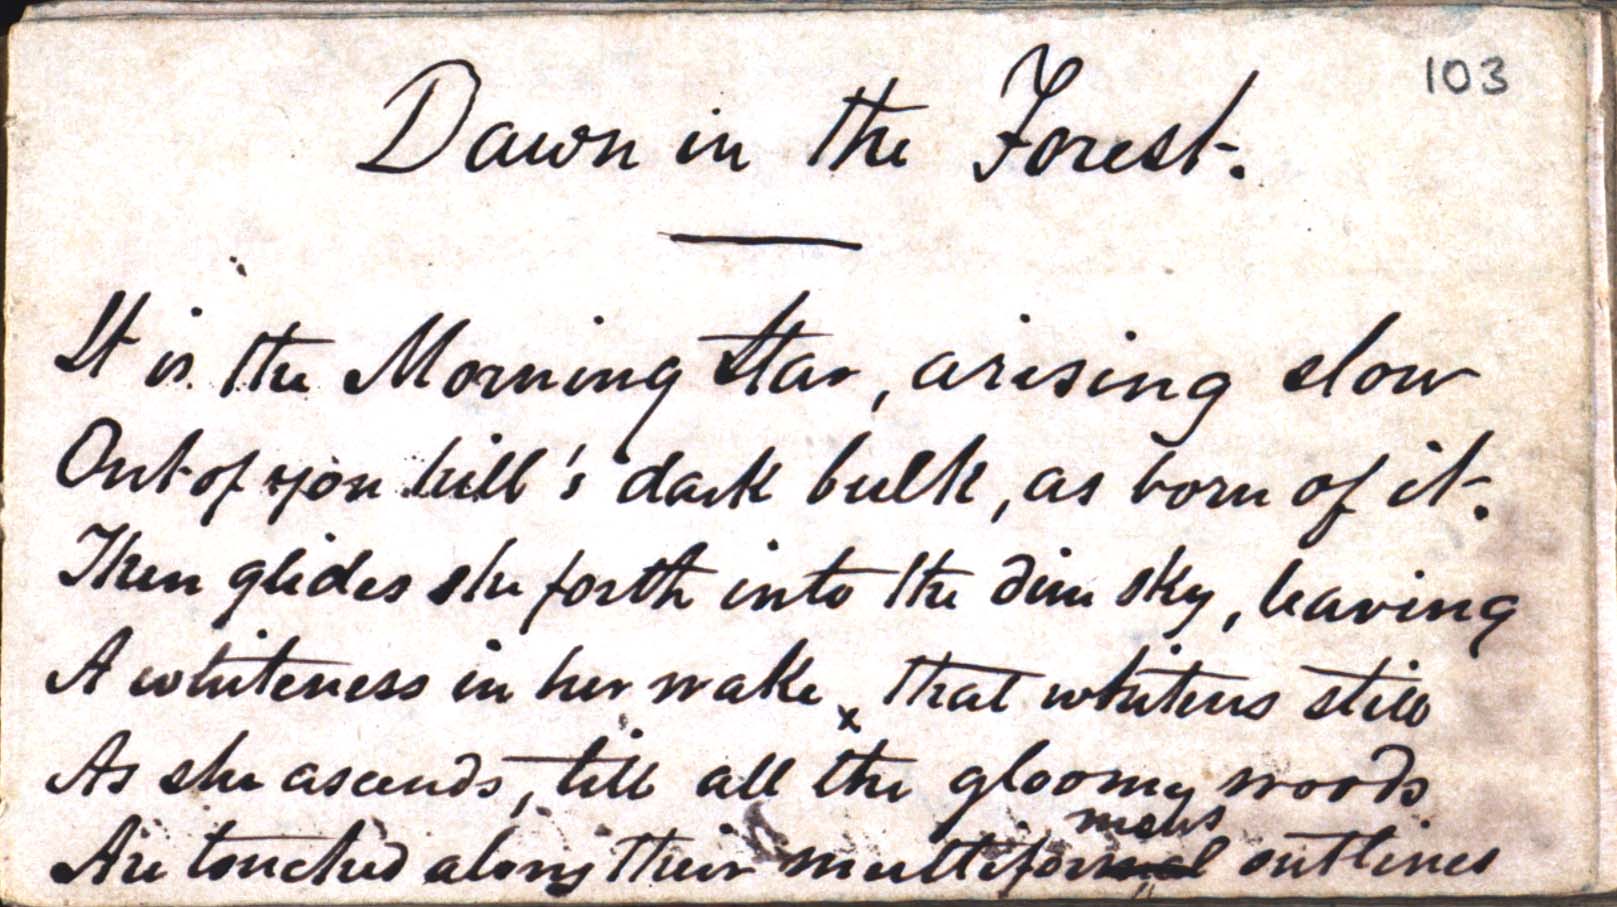 103
Dawn in the Forest.
It is the Morning Star, arising slow
Out of yon hill's dark bulk, as born of it.
Then glides she forth into the dim sky, leaving
A whiteness in her wake, that whitens still
As she ascends, till all the gloomy woods
Are touched along their multiform outlines